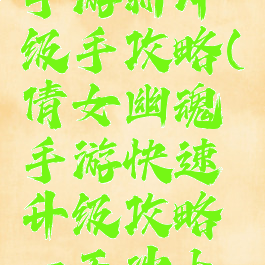 手游新升
级手攻略(
倩女幽魂
手游快速
升级攻略